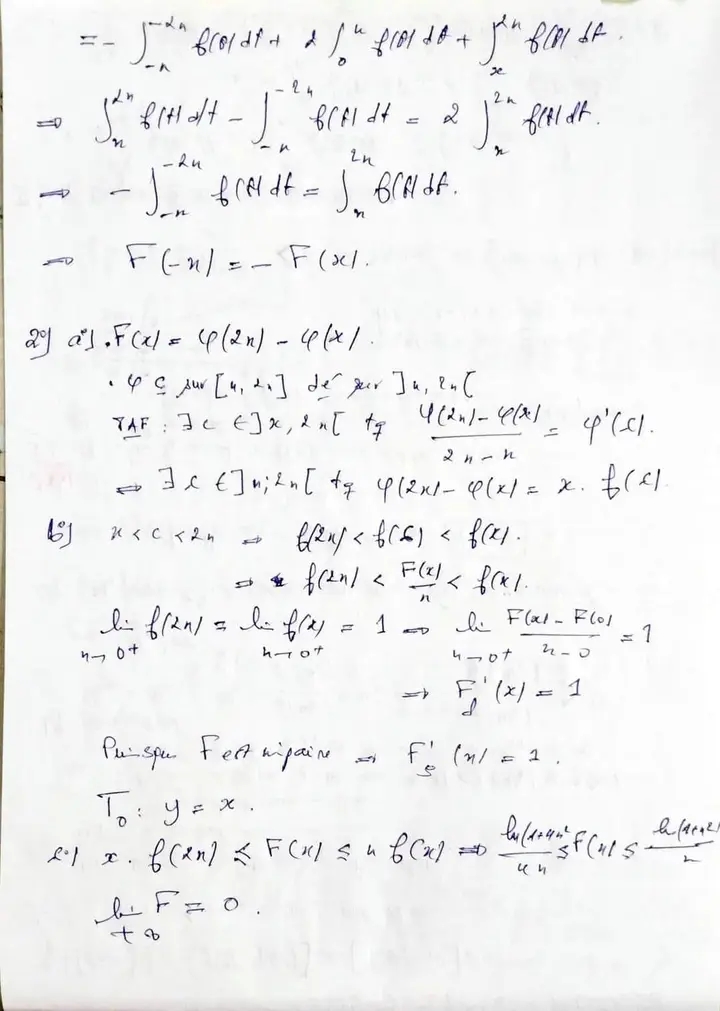 = - ∫_{-x}^{-2x} f(t) dt + 2 ∫_0^x f(t) dt + ∫_x^{2x} f(t) dt.
⇒ ∫_x^{2x} f(t) dt - ∫_{-x}^{-2x} f(t) dt = 2 ∫_x^{2x} f(t) dt.
⇒ - ∫_{-x}^{-2x} f(t) dt = ∫_x^{2x} f(t) dt.
⇒ F(-x) = - F(x).
2°) a°). F(x) = φ(2x) - φ(x).
• φ C sur [x, 2x] dé sur ]x, 2x[
TAF : ∃ c ∈ ]x, 2x[ tq (φ(2x) - φ(x))/(2x - x) = φ'(c).
⇔ ∃ c ∈ ]x; 2x[ tq φ(2x) - φ(x) = x. f(c).
b°) x < c < 2x ⇒ f(2x) < f(c) < f(x).
⇒ f(2x) < F(x)/x < f(x).
lim_{x→0+} f(2x) = lim_{x→0+} f(x) = 1 ⇒ lim_{x→0+} (F(x) - F(0))/(x - 0) = 1
⇒ F'_d(x) = 1
Puisque F est impaire ⇒ F'_g(x) = 1.
T_0 : y = x.
c°) x. f(2x) ≤ F(x) ≤ x f(x) ⇒ ln(1+4x²)/4x ≤ F(x) ≤ ln(1+x²)/x
lim_{+∞} F = 0.